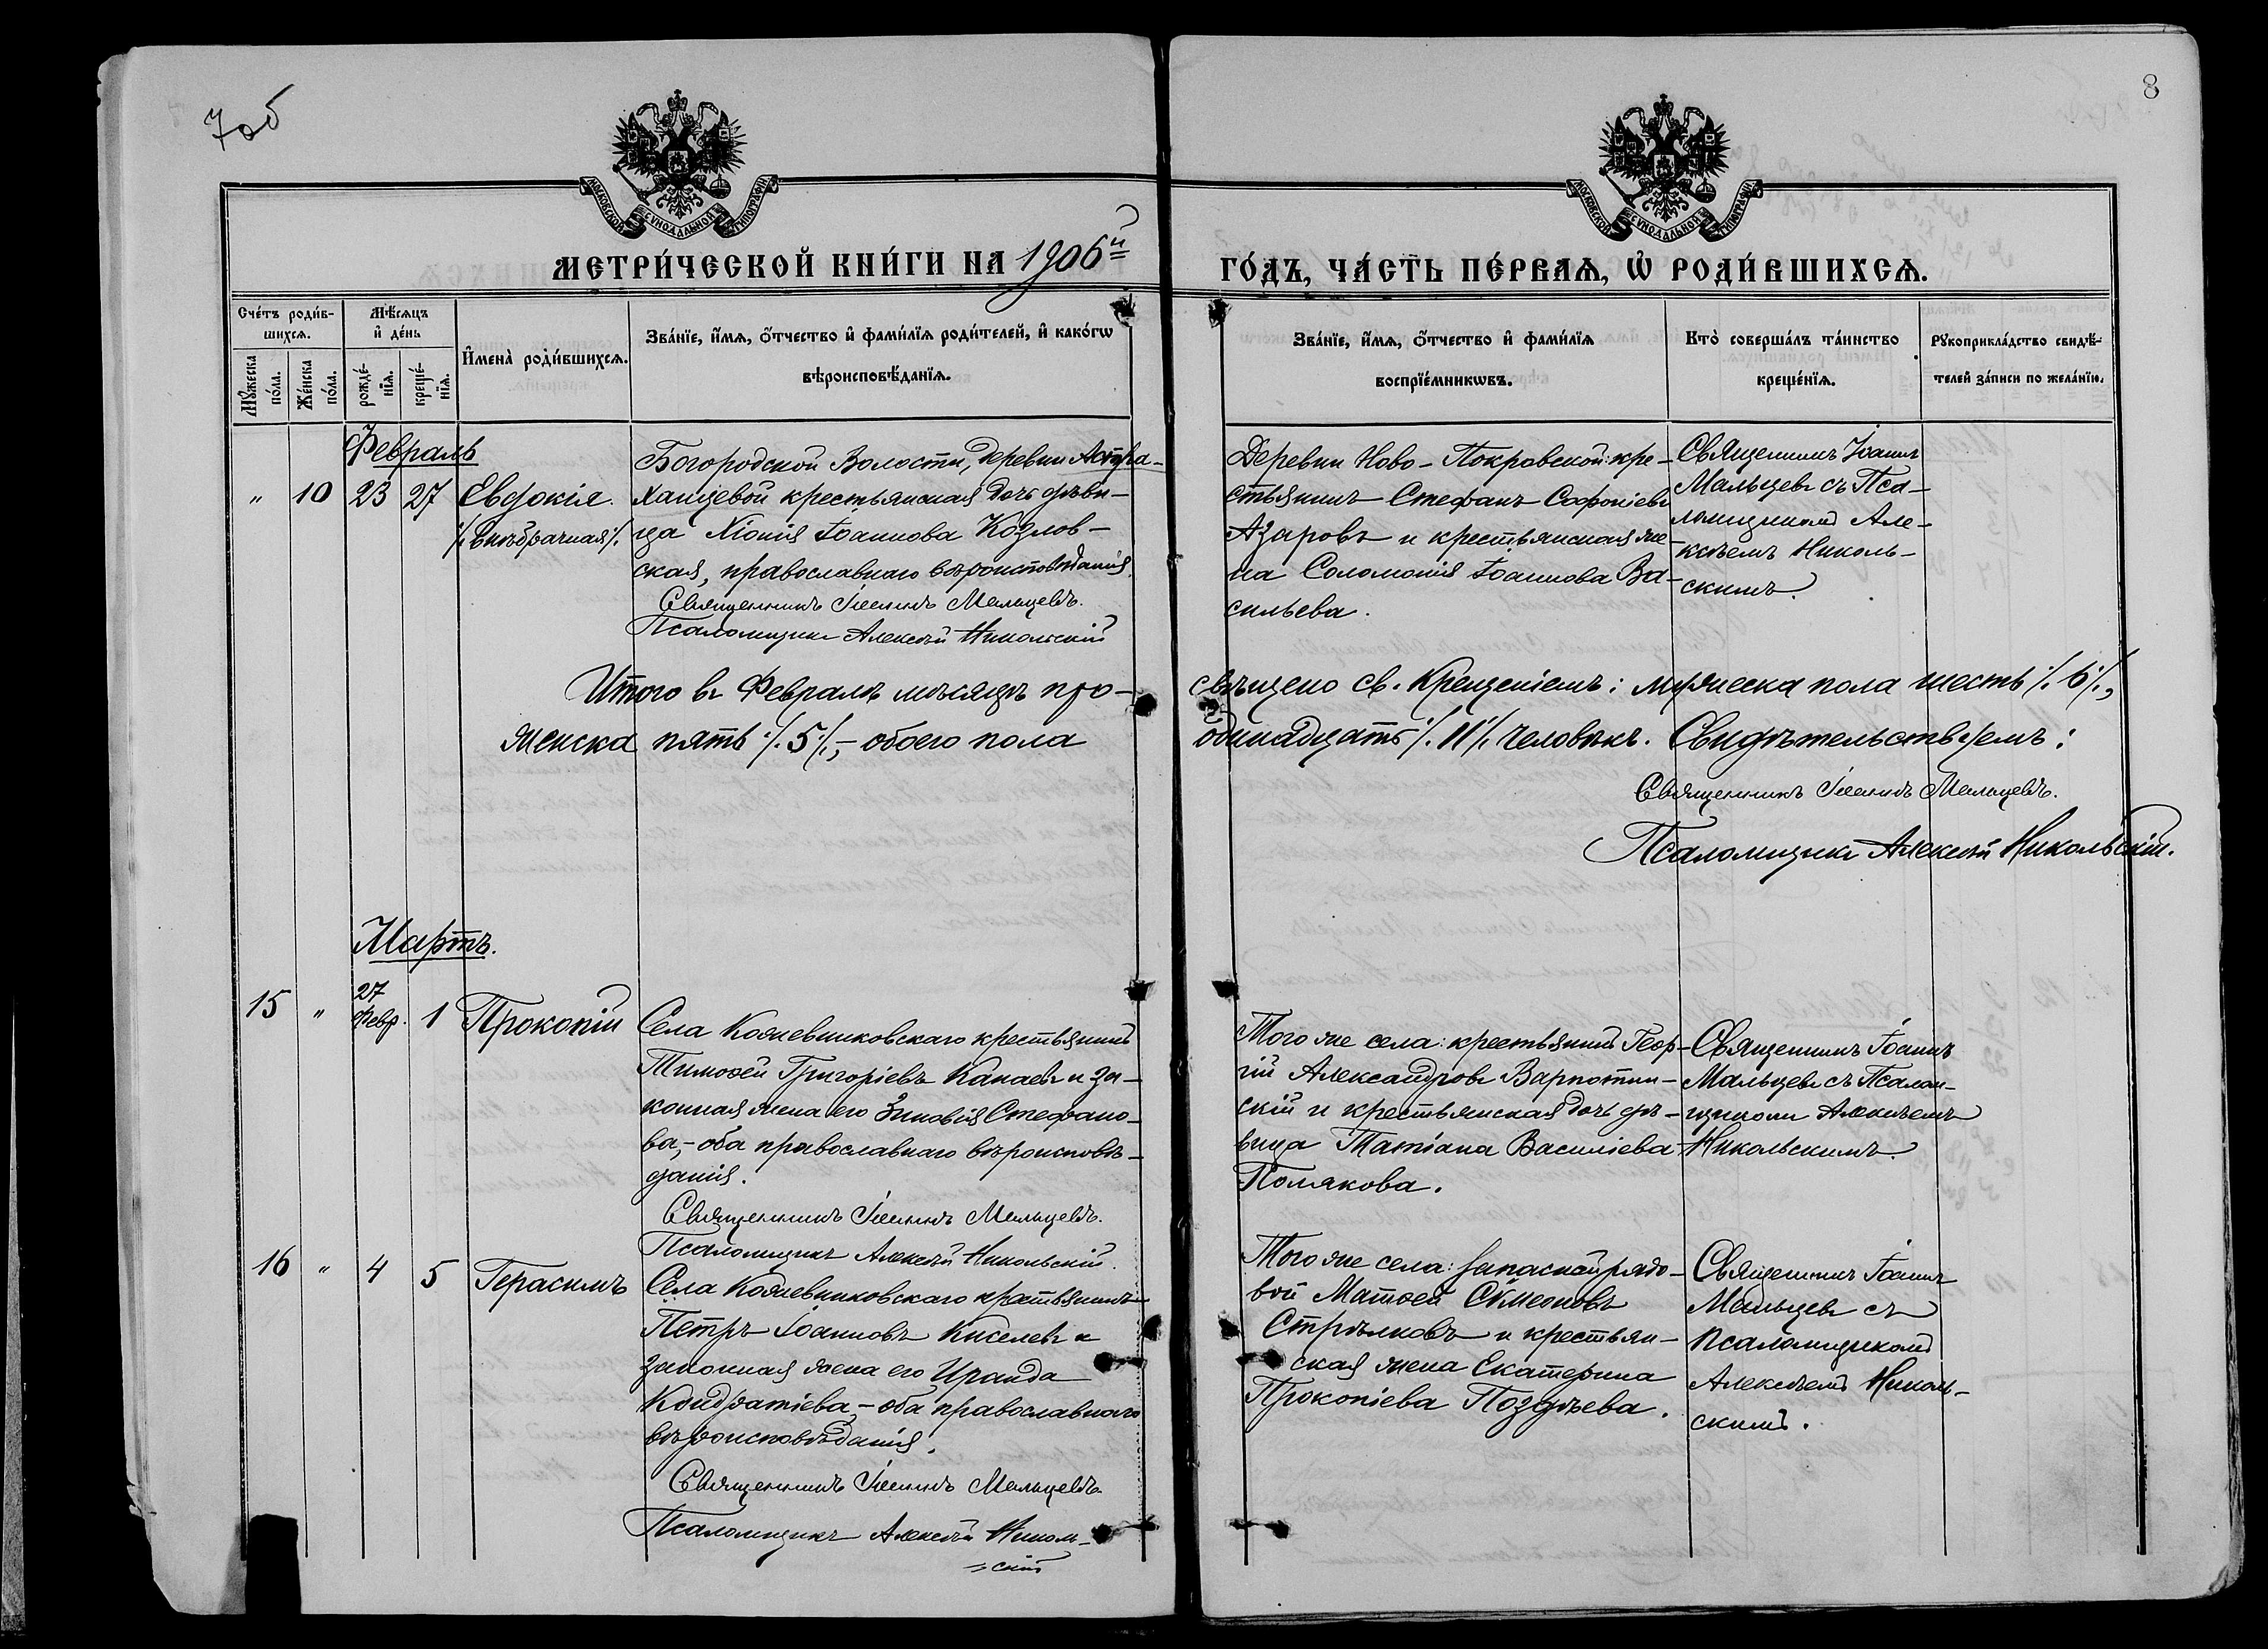 7 об
8
МОСКОВСКОЙ СѴНОДАЛЬНОЙ ТИПОГРАФІИ
МОСКОВСКОЙ СѴНОДАЛЬНОЙ ТИПОГРАФІИ
МЕТРИ́ЧЕСКОЙ КНИ́ГИ НА 1906й
ГО́ДЪ, ЧА́СТЬ ПЕ́РВАѦ, Ѽ РОДИ́ВШИХСѦ.
Сче́тъ роди́в-
шихсѧ.
Мѣ́сѧцъ
и҆ де́нь
Мꙋ́жеска
по́ла.
Же́нска
по́ла.
рожде́-
нїѧ.
креще́-
нїѧ.
И҆мена̀ роди́вшихсѧ.
Зва́нїе, и҆́мѧ, ѻ҆́тчество и҆ фами́лїѧ роди́телей, и҆ како́гѡ
вѣроисповѣ́данїѧ.
Зва́нїе, и҆́мѧ, ѻ҆́тчество и҆ фами́лїѧ
воспрїе́мникѡвъ.
Кто̀ соверша́лъ та́инство
креще́нїѧ.
Рꙋкоприкла́дство свидѣ́-
телей за́писи по жела́нїю.
Февраль
" 10 23 27 Евдокія.
/. внѣбрачная ./.
Богородской Волости, деревни Астра-
ханцевой крестьянская дочь дѣви-
ца Хіонія Іоаннова Козлов-
ская, православнаго вѣроисповѣданія.
Священникъ Іоаннъ Мальцевъ.
Псаломщикъ Алексѣй Никольскій
Деревни Ново-Покровской: кре-
стьянинъ Стефанъ Софоніевъ
Азаровъ и крестьянская же-
на Соломонія Іоаннова Ва-
сильева.
Священникъ Іоаннъ
Мальцевъ съ Пса-
ломщикомъ Але-
ксѣемъ Николь-
скимъ.
Итого въ Февралѣ мѣсяцѣ про-
свѣщено св. Крещеніемъ: мужеска пола шесть /. 6 ./.,
женска пять /. 5 ./., - обоего пола
одиннадцать /. 11 ./. человѣкъ. Свидѣтельствуемъ:
Священникъ Іоаннъ Мальцевъ.
Псаломщикъ Алексѣй Никольскій.
Мартъ.
15 " 27 Февр. 1 Прокопій
Села Кожевниковскаго крестьянинъ
Тимоѳей Григоріевъ Канаевъ и за-
конная жена его Зиновія Стефано-
ва, - оба православнаго вѣроисповѣ-
данія.
Священникъ Іоаннъ Мальцевъ.
Псаломщикъ Алексѣй Никольскій.
Того же села: крестьянинъ Геор-
гій Александровъ Варпотин-
скій и крестьянская дочь дѣ-
вица Татіана Василіева
Полякова.
Священникъ Іоаннъ
Мальцевъ съ Псалом-
щикомъ Алексѣемъ
Никольскимъ.
16 " 4 5 Герасимъ
Села Кожевниковскаго крестьянинъ
Петръ Іоанновъ Киселевъ и
законная жена его Ираида
Кондратіева, - оба православнаго
вѣроисповѣданія.
Священникъ Іоаннъ Мальцевъ.
Псаломщикъ Алексѣй Николь-
скій
Того же села: запасной рядо-
вой Матѳей Сѵмеоновъ
Стрѣлковъ и крестьян-
ская жена Екатерина
Прокопіева Поздѣева.
Священникъ Іоаннъ
Мальцевъ съ
Псаломщикомъ
Алексѣемъ Николь-
скимъ.